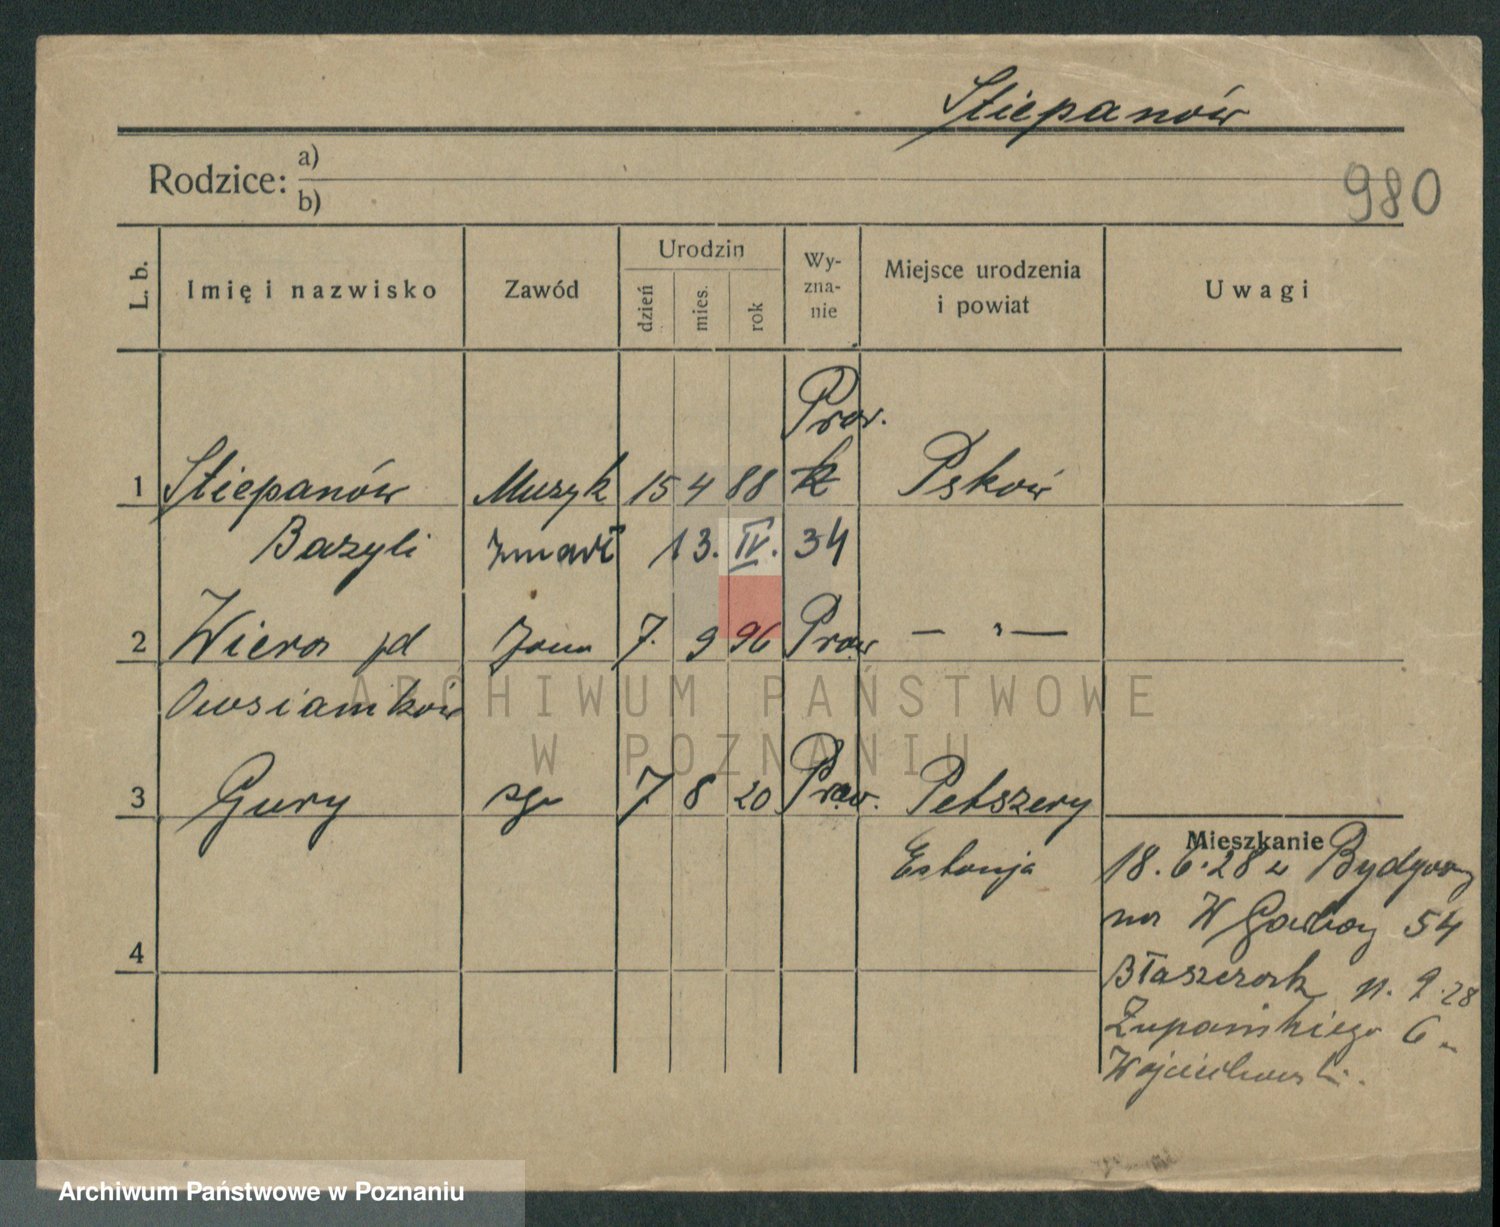 Stiepanów
Rodzice: a)
b)
980
L. b. Imię i nazwisko Zawód Urodzin dzień mies. rok Wy-zna-nie Miejsce urodzenia i powiat Uwagi
Praw.
1 Stiepanów Muzyk 15 4 88 k Psków
Bazyli zmarł 13. IV. 34
2 Wiera żona 7. 9 96 Praw — " —
Owsianików
3 Gury syn 7 8 20 Praw. Petszery
Estonja
Mieszkanie
18.6.28 z Bydgoszczy
na W Garbary 54
Błaszczak 11.9.28
Żupańskiego 6 u
Wojciechowski.
4
ARCHIWUM PAŃSTWOWE
W POZNANIU
Archiwum Państwowe w Poznaniu